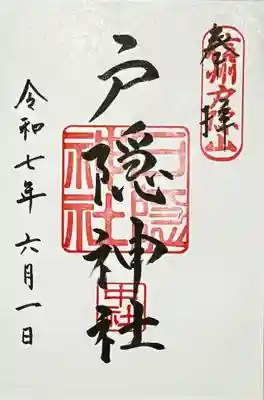 奉拝
戸隠神社
戸隠
神社
中社
令和七年 六月一日